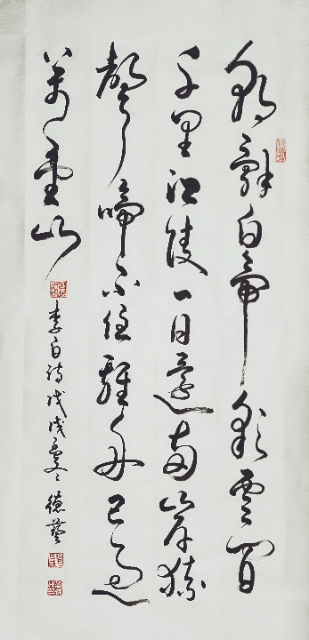 朝辭白帝彩雲間
千里江陵一日還兩岸猿
聲啼不住輕舟已過
萬重山
李白詩戊戌德藝